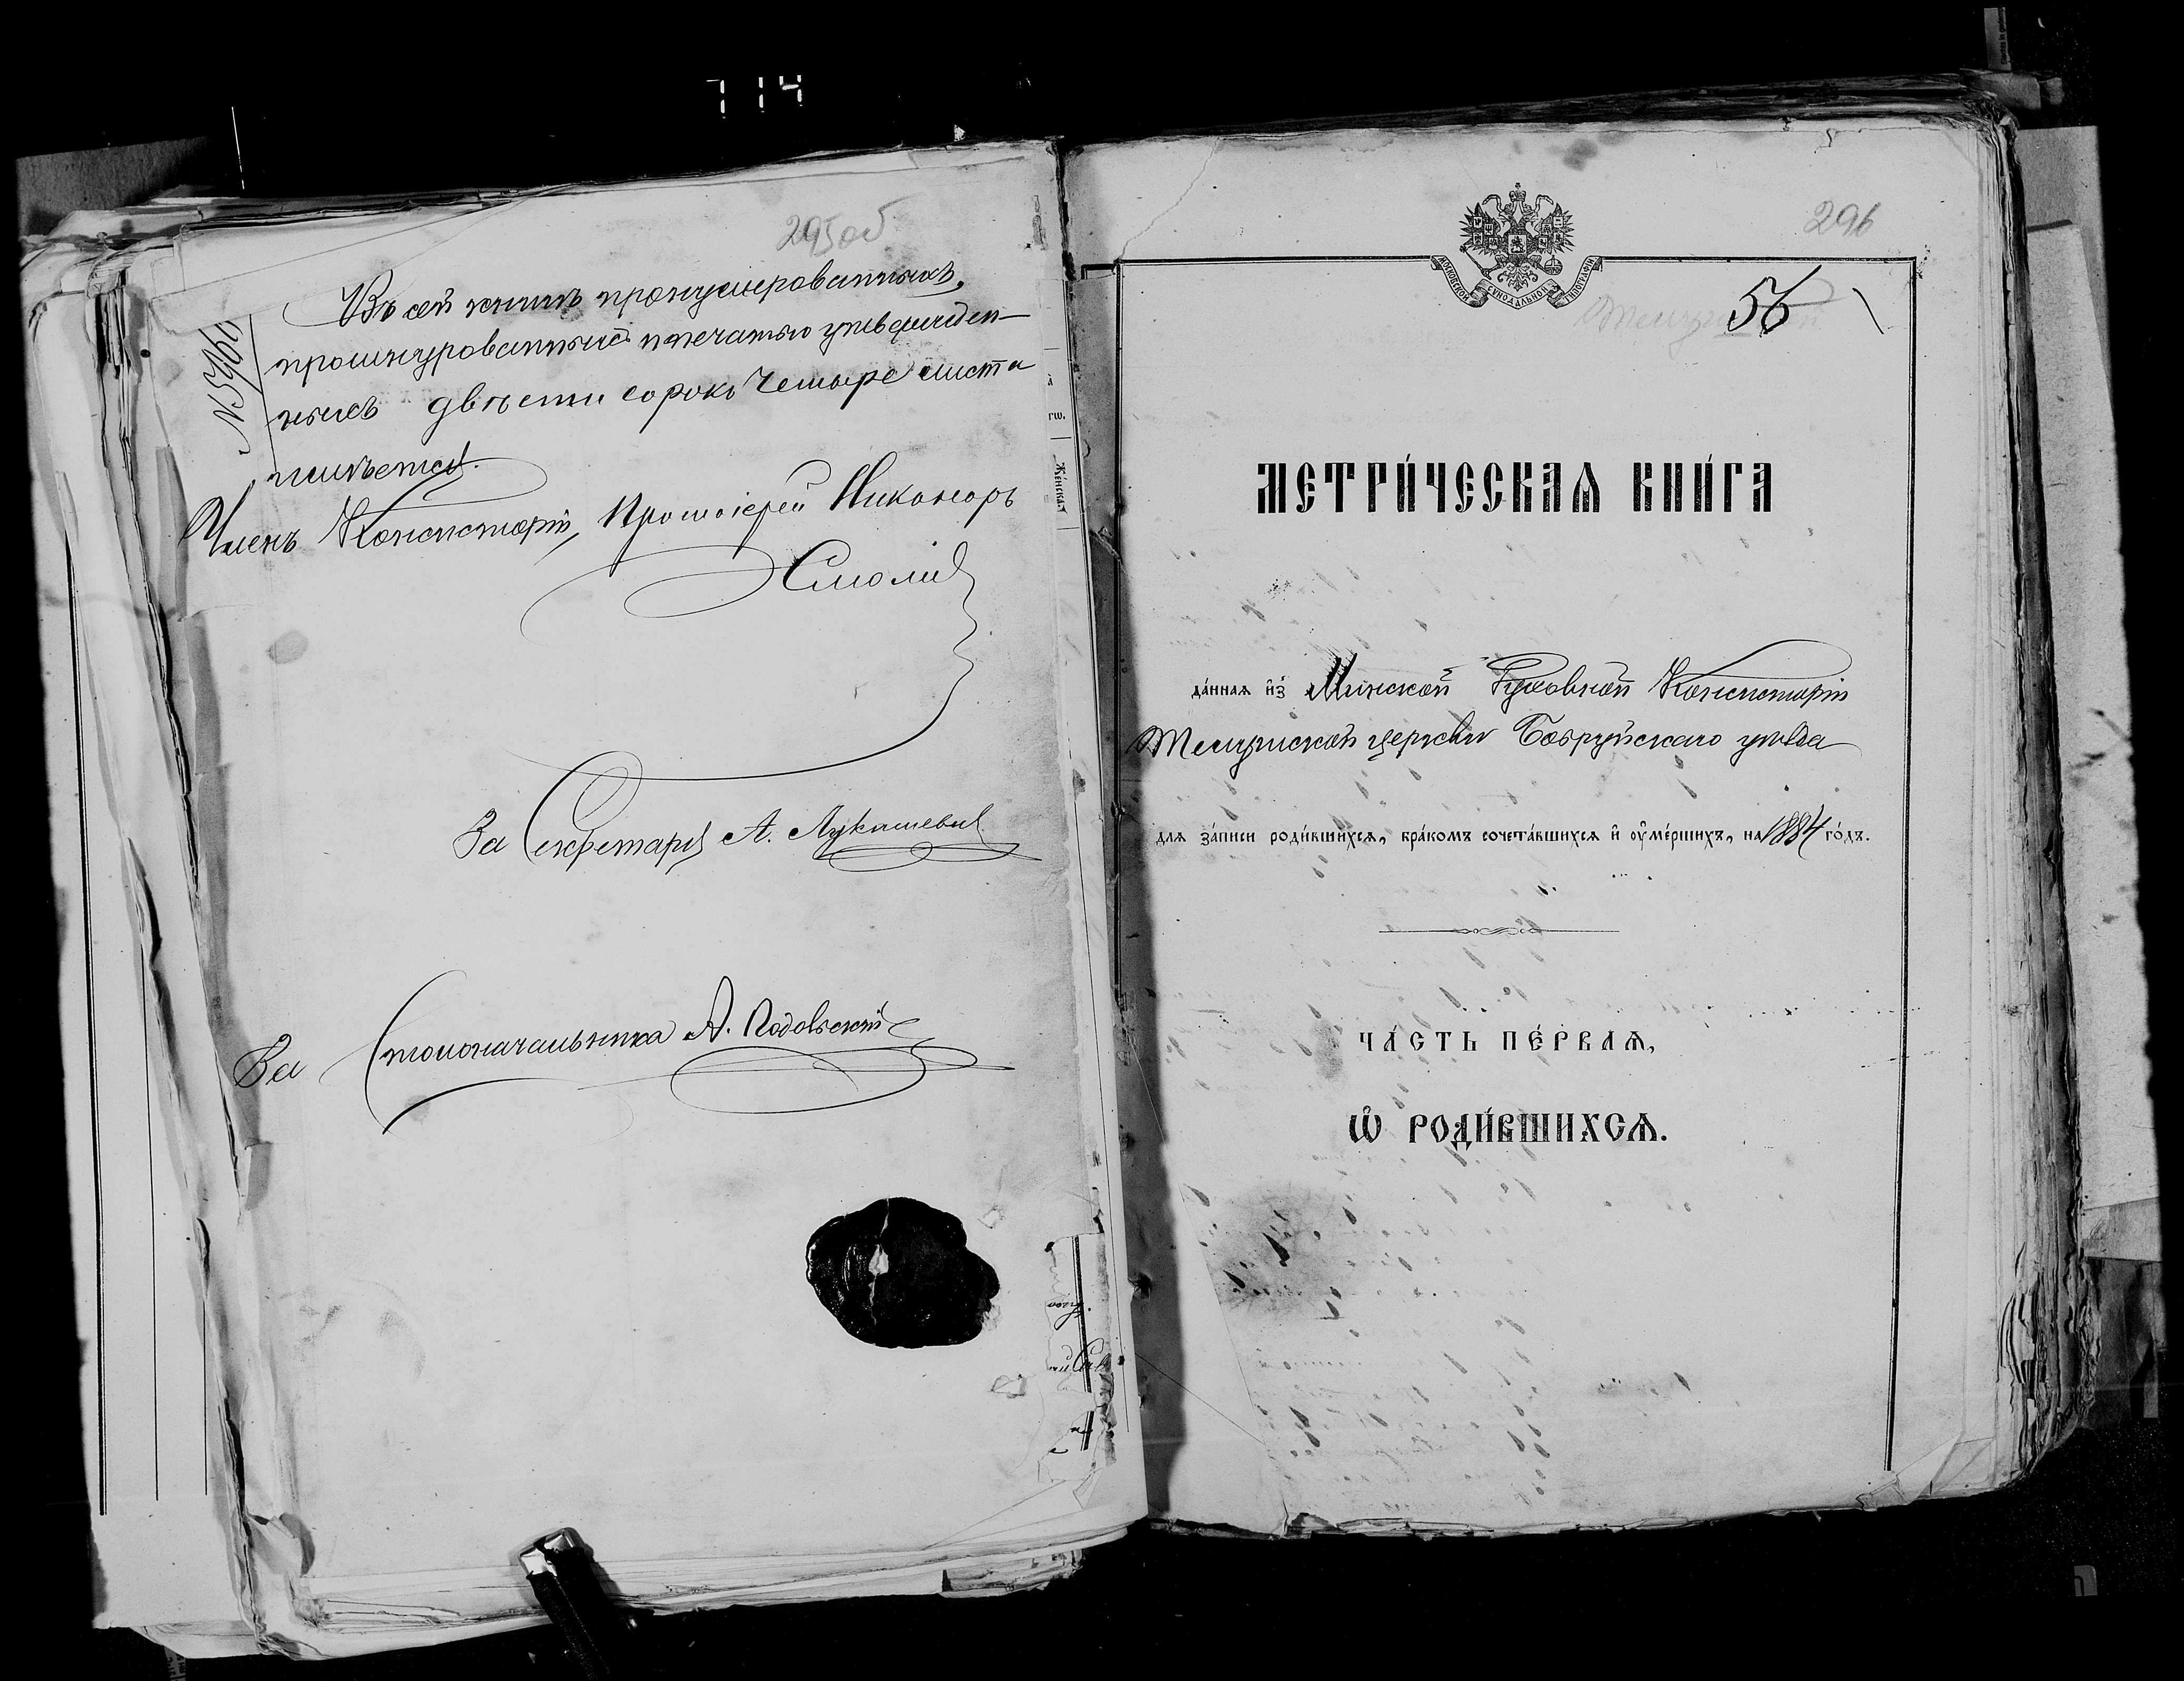 714
295об
Въ сей книгѣ пронумерованныхъ,
прошнурованныхъ и печатью утвержден-
ныхъ двѣсти сорокъ четыре листа
имѣется.
№ 5960
Членъ Консисторіи, Протоіерей Никаноръ
Смолич
За Секретаря А. Лукашевич
За Столоначальника А. Подольскій
гѡ.
Же́нска
296
МОСКОВСКОЙ СѴНОДАЛЬНОЙ ТИПОГРАФІИ
56
МЕТРИ́ЧЕСКАѦ КНИ́ГА
да́ннаѧ и҆з̾ Минской Духовной Консисторіи
церкви Бобруйскаго уѣзда
длѧ за́писи роди́вшихсѧ, бра́комъ сочета́вшихсѧ и҆ ᲂу҆ме́ршихъ, на 1884 го́дъ.
ЧА́СТЬ ПЕ́РВАѦ,
Ѡ҆ РОДИ́ВШИХСѦ.